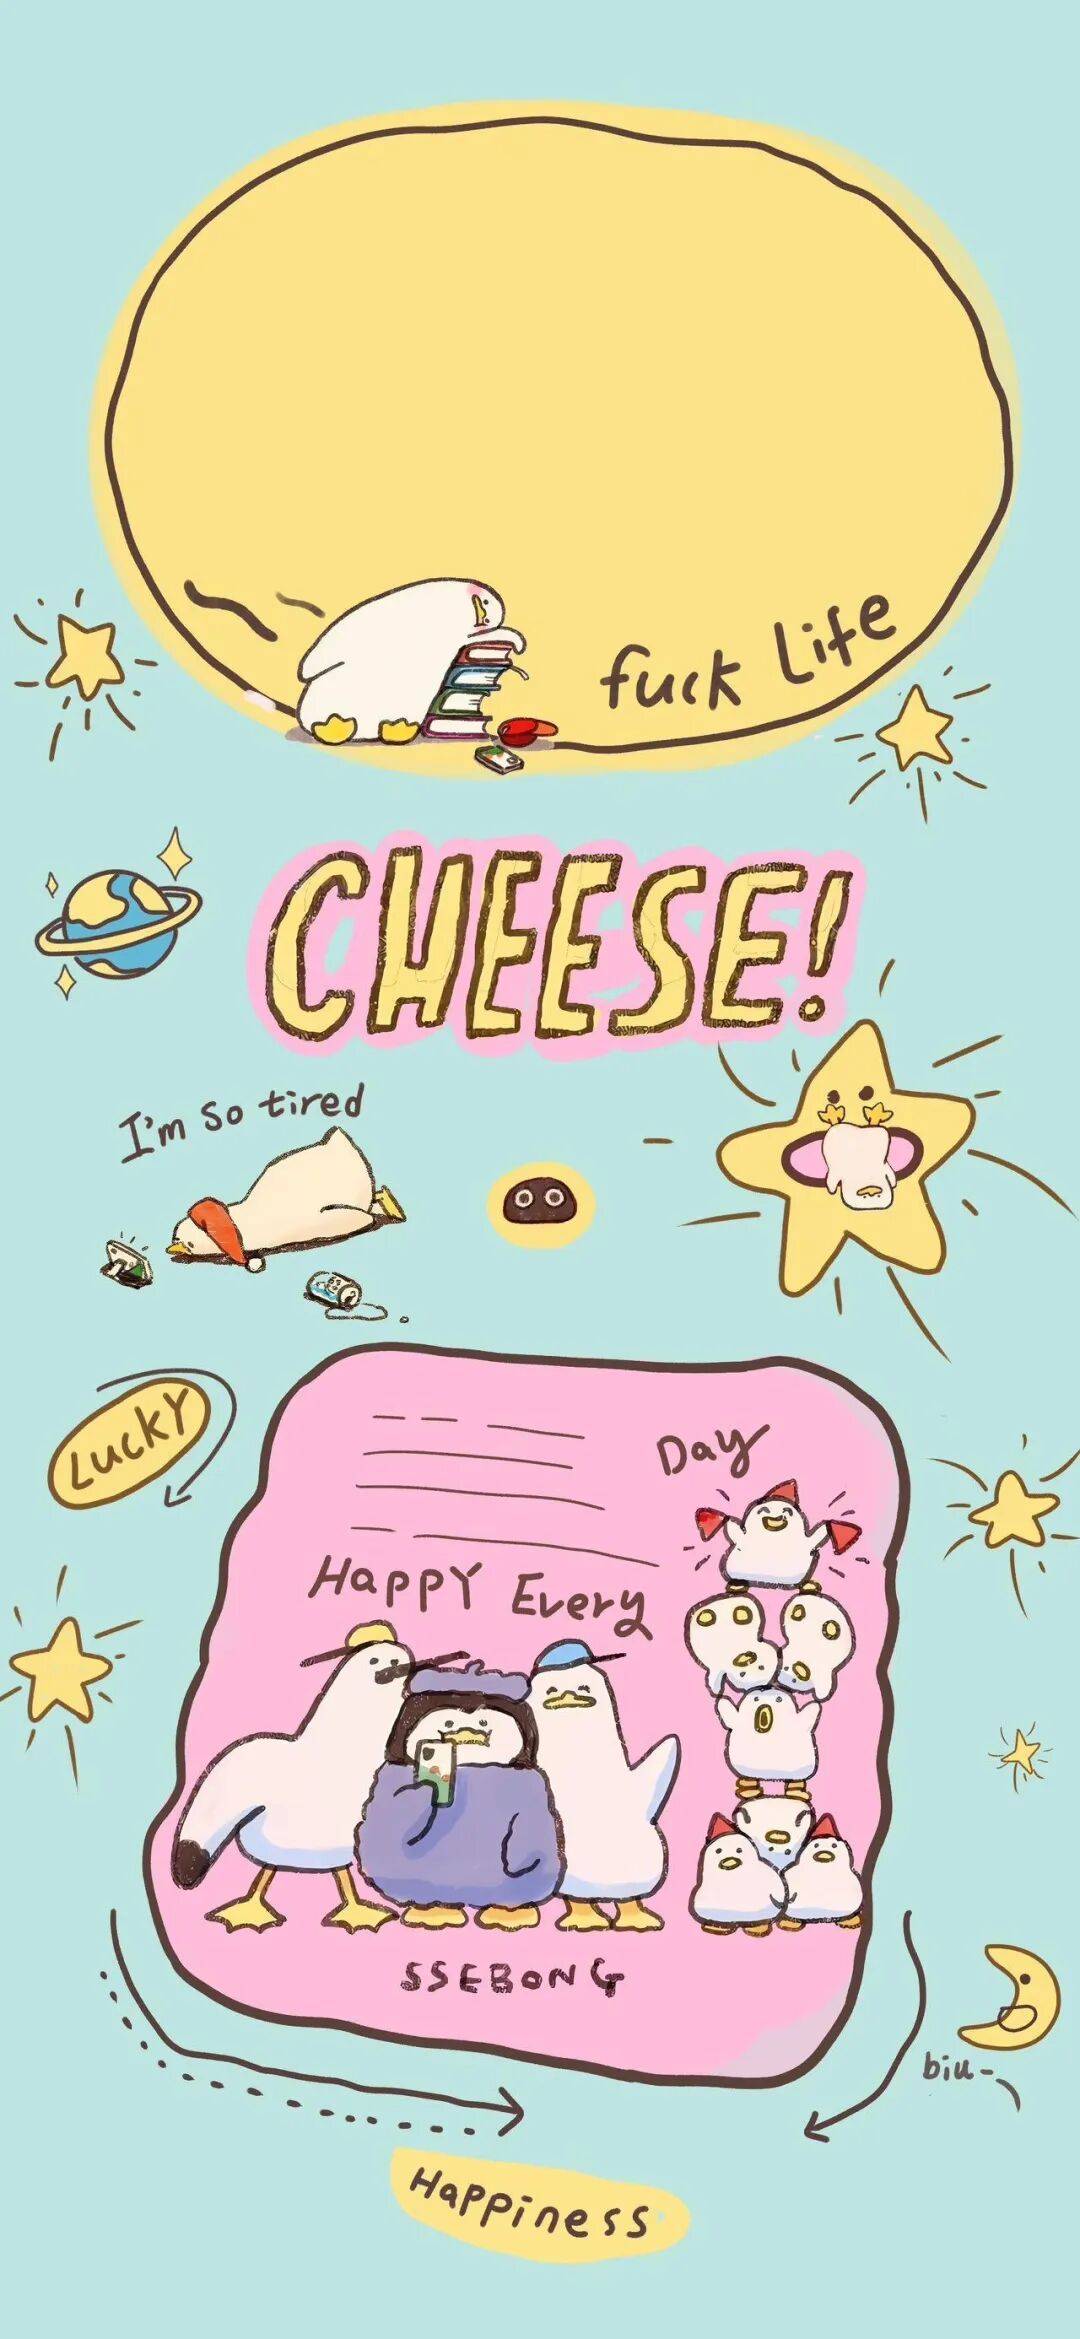 fuck Life
CHEESE!
I'm So tired
LUCKY
Day
HAPPY Every
SSEBONG
biu~
HaPPiness